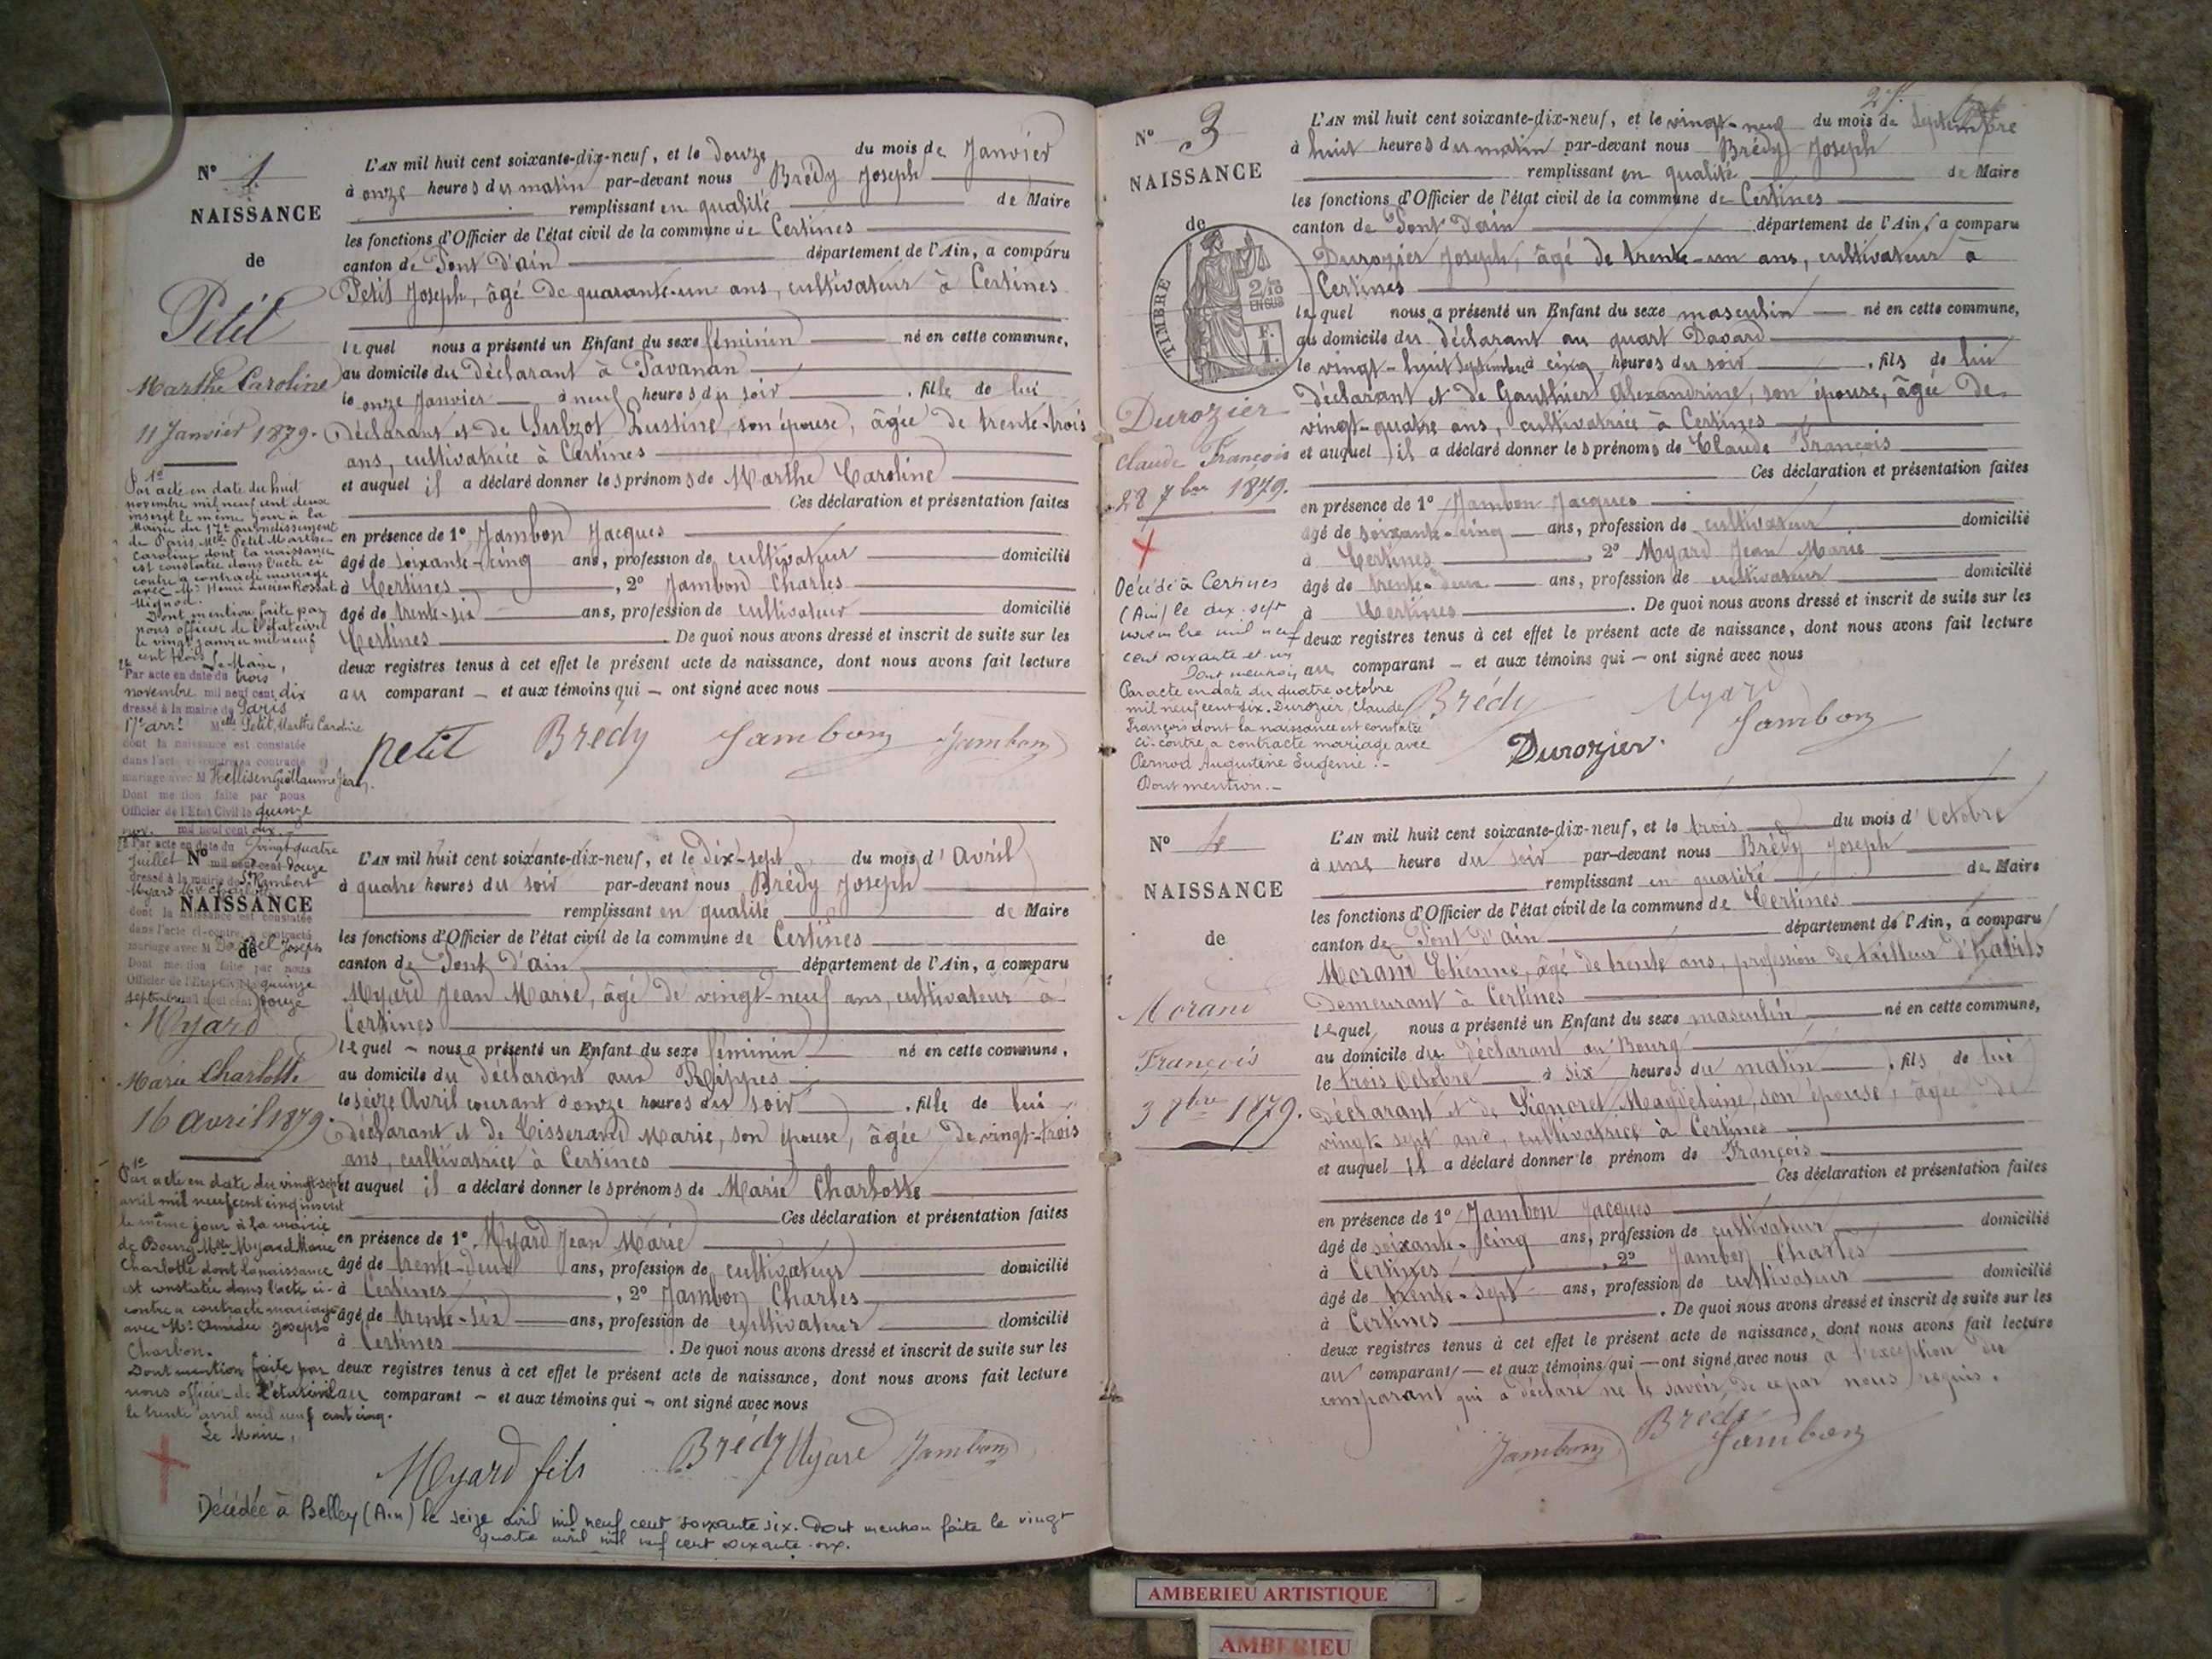 N° 1
NAISSANCE
de
Petit
Marthe Caroline
11 Janvier 1879.
1°
Par acte en date du huit
novembre mil neuf cent deux
inscrit le même jour à la
Mairie du 17e arrondissement
de Paris, Melle Petit Marthe
Caroline dont la naissance
est constatée dans l'acte ci
contre a contracté mariage
avec Mr Henri Lucien Rossat
Mignod.
Dont mention faite par
nous officier de l'état civil
le vingt janvier mil neuf
cent trois Le Maire,
2e
Par acte en date du trois
novembre mil neuf cent dix
dressé à la mairie de Paris
17e arrt Melle Petit, Marthe Caroline
dont la naissance est constatée
dans l'acte ci-contre a contracté
mariage avec M Hellisen Guillaume Jean.
Dont mention faite par nous
Officier de l'Etat Civil le quinze
nov. mil neuf cent dix.
L'AN mil huit cent soixante-dix-neuf, et le douze du mois de Janvier
à onze heures du matin par-devant nous Brédy Joseph
remplissant en qualité de Maire
les fonctions d'Officier de l'état civil de la commune de Certines
canton de Pont d'ain département de l'Ain, a comparu
Petit Joseph, âgé de quarante-un ans, cultivateur à Certines
lequel nous a présenté un Enfant du sexe féminin né en cette commune,
au domicile du déclarant à Pavanan
le onze Janvier à neuf heures du soir, fille de lui
déclarant et de Justine, son épouse, âgée de trente-trois
ans, cultivatrice à Certines
et auquel il a déclaré donner les prénoms de Marthe Caroline
Ces déclaration et présentation faites
en présence de 1° Jambon Jacques
âgé de soixante-cinq ans, profession de cultivateur domicilié
à Certines, 2° Jambon Charles
âgé de trente-six ans, profession de cultivateur domicilié
Certines. De quoi nous avons dressé et inscrit de suite sur les
deux registres tenus à cet effet le présent acte de naissance, dont nous avons fait lecture
au comparant – et aux témoins qui – ont signé avec nous
petit Brédy Jambon Jambon
2e Par acte en date du vingt quatre
Juillet mil neuf cent douze
dressé à la mairie de St Rambert
Myard Mie Charlotte
dont la naissance est constatée
dans l'acte ci-contre, a contracté
mariage avec M Joseph
Dont mention faite par nous
Officier de l'Etat Civil le quinze
septembre mil neuf cent douze
N°
NAISSANCE
de
Myard
Marie Charlotte
16 avril 1879.
1°
Par acte en date du vingt-sept
avril mil neuf cent cinq inscrit
le même jour à la mairie
de Bourg Melle Myard Marie
Charlotte dont la naissance
est constatée dans l'acte ci-
contre a contracté mariage
avec Mr Amédée Joseph
Charbon.
Dont mention faite par
nous officier de l'état civil
le trente avril mil neuf cent cinq.
Le Maire,
L'AN mil huit cent soixante-dix-neuf, et le dix-sept du mois d'avril
à quatre heures du soir par-devant nous Brédy Joseph
remplissant en qualité de Maire
les fonctions d'Officier de l'état civil de la commune de Certines
canton de Pont d'ain département de l'Ain, a comparu
Myard Jean Marie, âgé de vingt-neuf ans, cultivateur à
Certines
lequel – nous a présenté un Enfant du sexe féminin né en cette commune,
au domicile du déclarant aux Rippes
le seize Avril courant à onze heures du soir, fille de lui
déclarant et de Tisserand Marie, son épouse, âgée de vingt-trois
ans, cultivatrice à Certines
et auquel il a déclaré donner les prénoms de Marie Charlotte
Ces déclaration et présentation faites
en présence de 1° Myard Jean Marie
âgé de trente-deux ans, profession de cultivateur domicilié
à Certines, 2° Jambon Charles
âgé de trente-six ans, profession de cultivateur domicilié
à Certines. De quoi nous avons dressé et inscrit de suite sur les
deux registres tenus à cet effet le présent acte de naissance, dont nous avons fait lecture
au comparant – et aux témoins qui – ont signé avec nous
Myard fils Brédy Myard Jambon
Décédée à Belley (Ain) le seize avril mil neuf cent soixante six. Dont mention faite le vingt
quatre avril mil neuf cent soixante-six.
N° 3
NAISSANCE
de
TIMBRE
2/10
EN SUS
F.
1.
Durozier
Claude François
28 7bre 1879.
Décédé à Certines
(Ain) le dix-sept
novembre mil neuf
cent soixante et un
Dont mention
Par acte en date du quatre octobre
mil neuf cent six. Durozier, Claude
François dont la naissance est constatée
ci-contre, a contracté mariage avec
Pernod Augustine Eugénie.-
Dont mention.-
2 f.
L'AN mil huit cent soixante-dix-neuf, et le vingt-neuf du mois de Septembre
à huit heures du matin par-devant nous Brédy Joseph
remplissant en qualité de Maire
les fonctions d'Officier de l'état civil de la commune de Certines
canton de Pont d'ain département de l'Ain, a comparu
Durozier Joseph, âgé de trente-un ans, cultivateur à
Certines
lequel nous a présenté un Enfant du sexe masculin né en cette commune,
au domicile du déclarant au quart Davard
le vingt-huit Septembre à cinq heures du soir, fils de lui
déclarant et de Gauthier Alexandrine, son épouse, âgée de
vingt-quatre ans, cultivatrice à Certines
et auquel il a déclaré donner les prénoms de Claude François
Ces déclaration et présentation faites
en présence de 1° Jambon Jacques
âgé de soixante-cinq ans, profession de cultivateur domicilié
à Certines, 2° Myard Jean Marie
âgé de trente-deux ans, profession de cultivateur domicilié
à Certines. De quoi nous avons dressé et inscrit de suite sur les
deux registres tenus à cet effet le présent acte de naissance, dont nous avons fait lecture
au comparant – et aux témoins qui – ont signé avec nous
Brédy Myard
Durozier. Jambon
N° 4
NAISSANCE
de
Morand
François
3 8bre 1879.
L'AN mil huit cent soixante-dix-neuf, et le trois du mois d'Octobre
à une heure du soir par-devant nous Brédy Joseph
remplissant en qualité de Maire
les fonctions d'Officier de l'état civil de la commune de Certines
canton de Pont d'ain département de l'Ain, a comparu
Morand Etienne, âgé de trente ans, profession de tailleur d'habits
Demeurant à Certines
lequel nous a présenté un Enfant du sexe masculin né en cette commune,
au domicile du déclarant au Bourg
le trois Octobre à six heures du matin, fils de lui
déclarant et de Signoret Magdeleine, son épouse, âgée de
vingt-sept ans, cultivatrice à Certines
et auquel il a déclaré donner le prénom de François
Ces déclaration et présentation faites
en présence de 1° Jambon Jacques
âgé de soixante-cinq ans, profession de cultivateur domicilié
à Certines, 2° Jambon Charles
âgé de trente-sept ans, profession de cultivateur domicilié
à Certines. De quoi nous avons dressé et inscrit de suite sur les
deux registres tenus à cet effet le présent acte de naissance, dont nous avons fait lecture
au comparant – et aux témoins qui – ont signé avec nous à l'exception du
comparant qui a déclaré ne le savoir, de ce par nous requis.
Jambon Brédy Jambon
AMBERIEU ARTISTIQUE
AMBERIEU